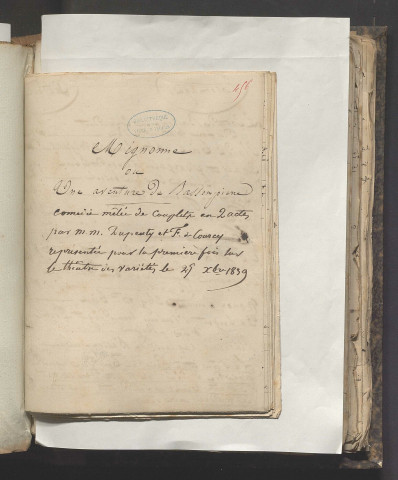 455
Mignonne
ou
Une aventure de Bassompierre
comédie mêlée de couplets en 2 actes
par m.m. Dupeuty et F. de Courcy
représentée pour la première fois sur
le théâtre des variétés le 25 Xbre 1839